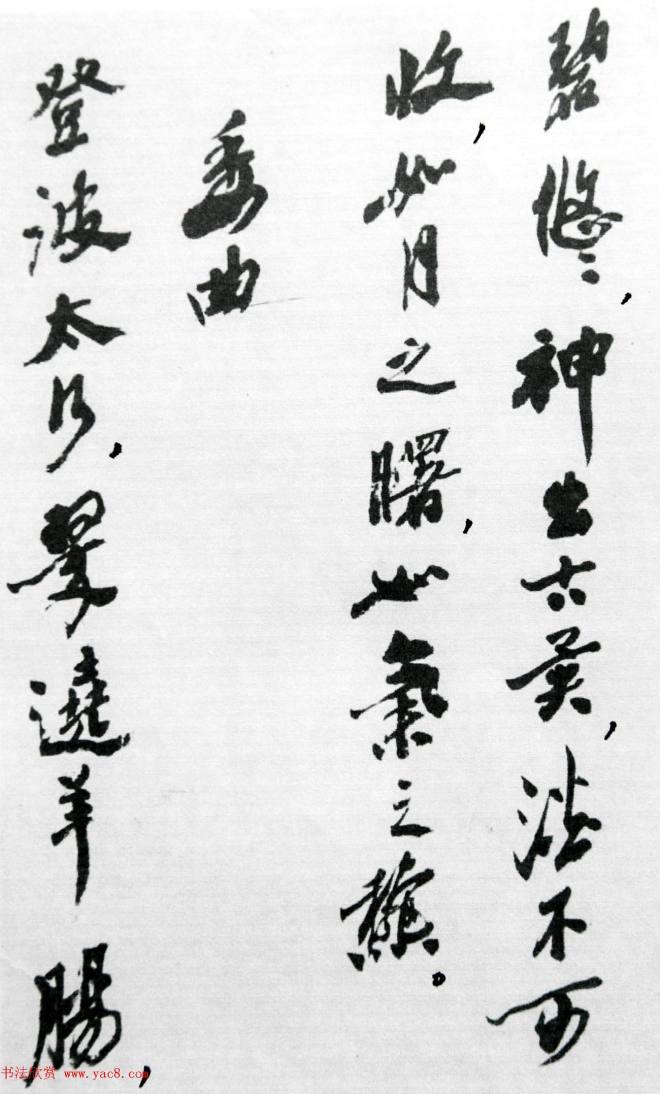 碧悠〻,神出古異,澹不可
收,如月之曙,如氣之龝。
委曲
登彼太行,翠遶羊腸,
书法欣赏 www.yac8.com